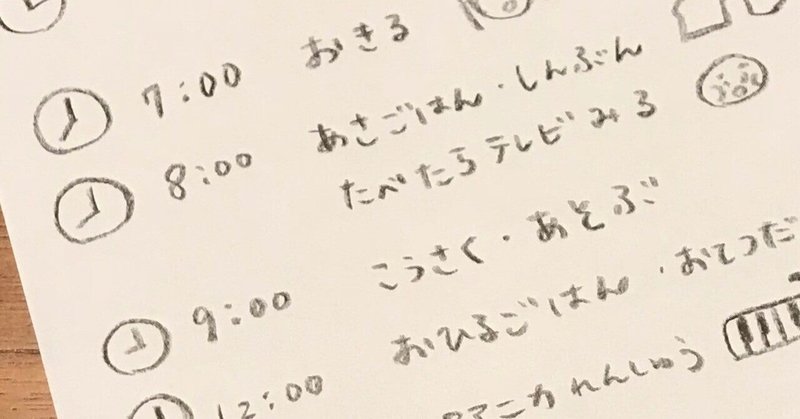 7:00 おきる
8:00 あさごはん・しんぶん
たべたらテレビみる
9:00 こうさく・あそぶ
12:00 おひるごはん・おてつだ
れんしゅう